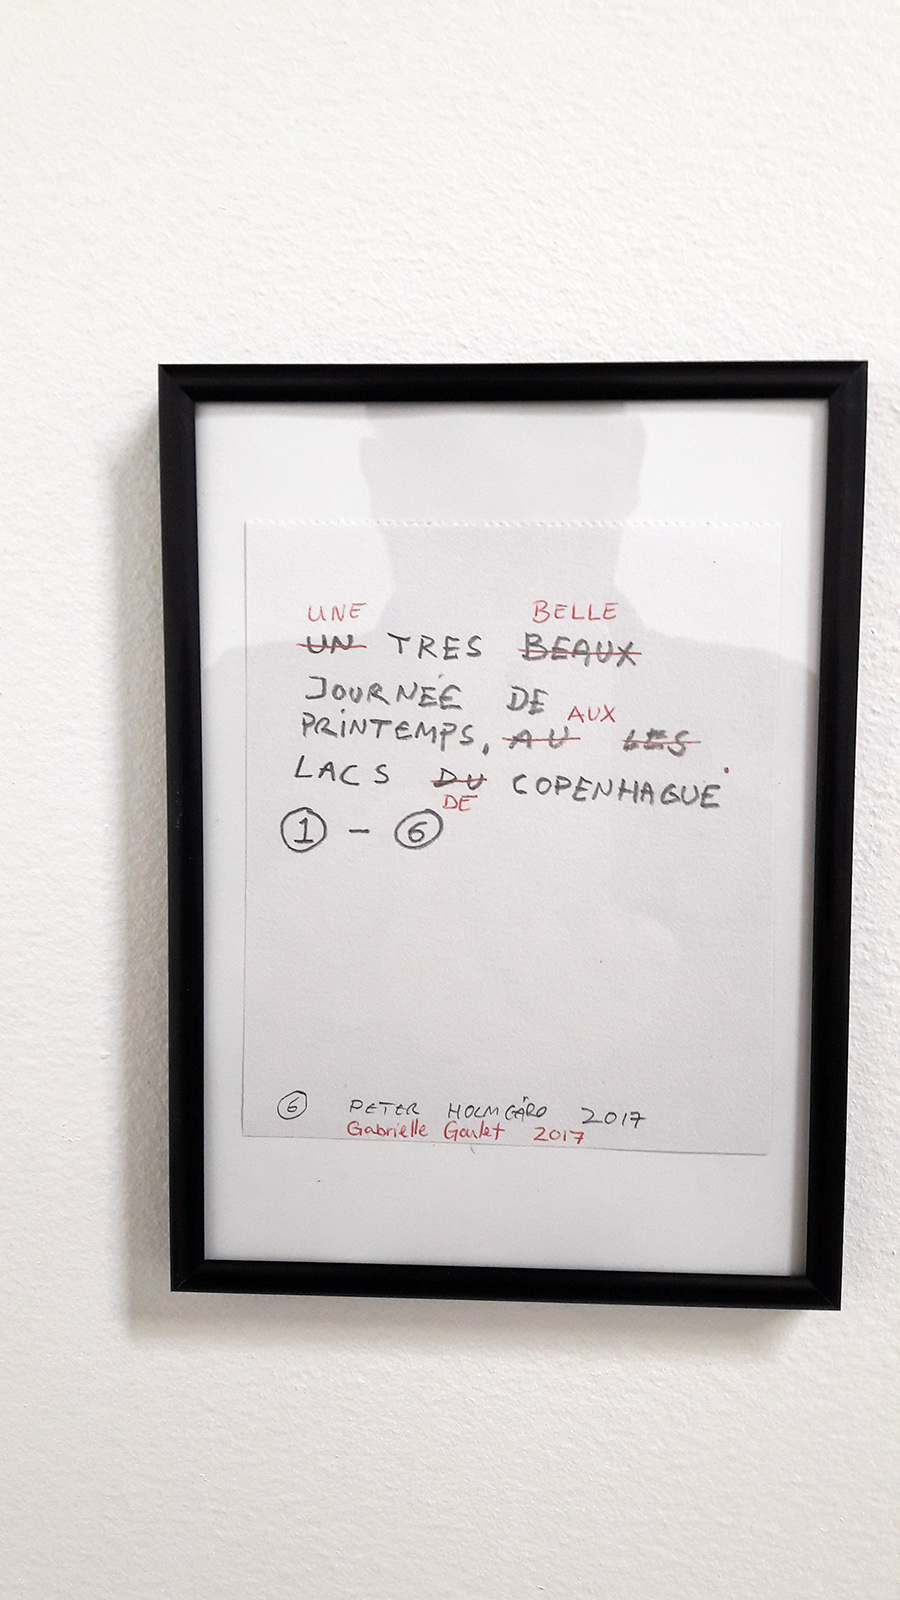 UNE BELLE
UN TRES BEAUX
JOURNÉE DE
AUX
PRINTEMPS, AU LES
LACS DU COPENHAGUE
DE
1 - 6
6 PETER HOLMGÅRD 2017
Gabrielle Goulet 2017